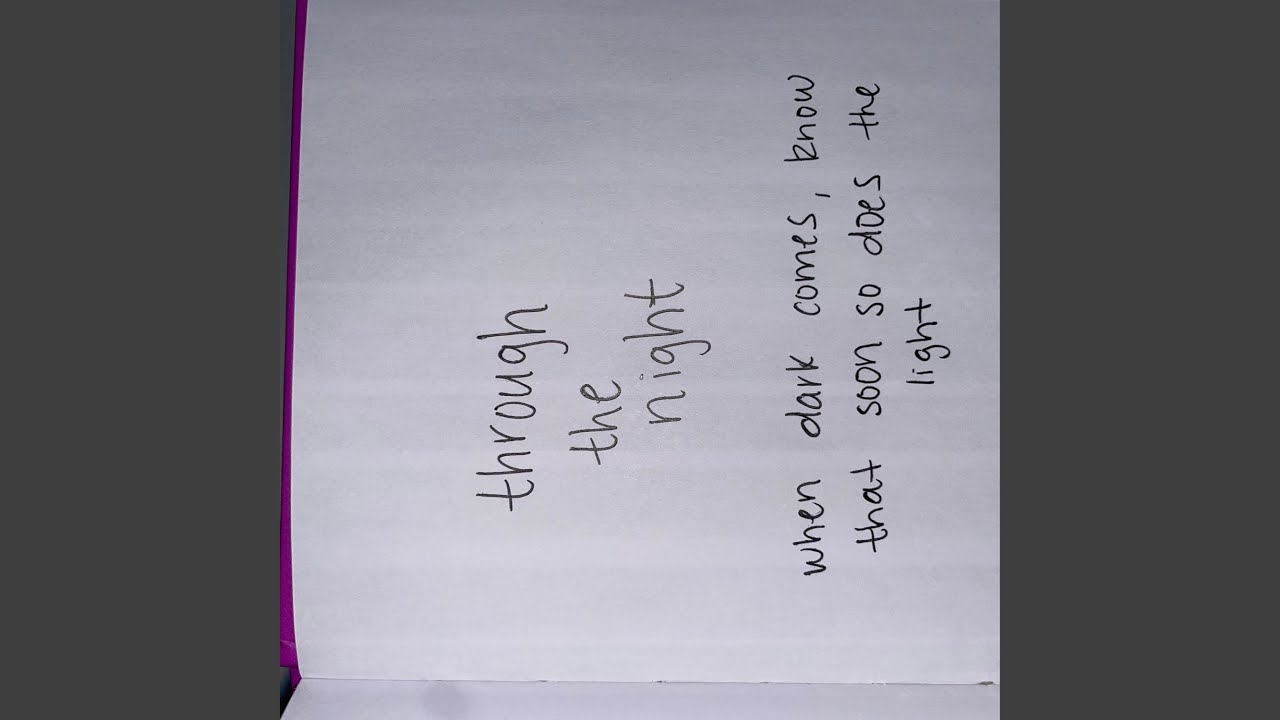 through
the
night
when dark comes, know
that soon so does the
light